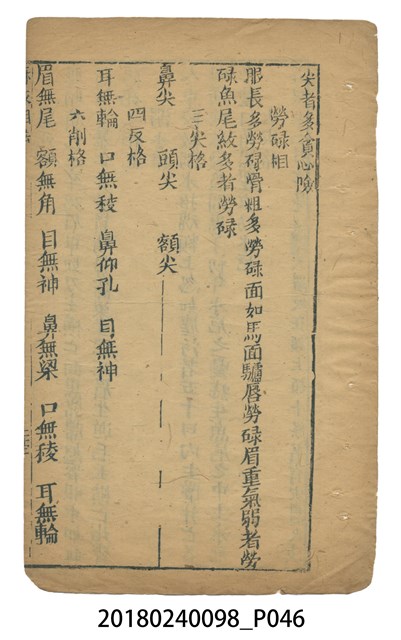 尖者多貪心險
勞碌相
眼長多勞碌骨粗多勞碌面如馬面驢唇勞碌眉重氣弱者勞
碌魚尾紋多者勞碌
三尖格
鼻尖 頭尖 額尖
四反格
耳無輪 口無稜 鼻仰孔 目無神
六削格
眉無尾 額無角 目無神 鼻無梁 口無稜 耳無輪
20180240098_P046